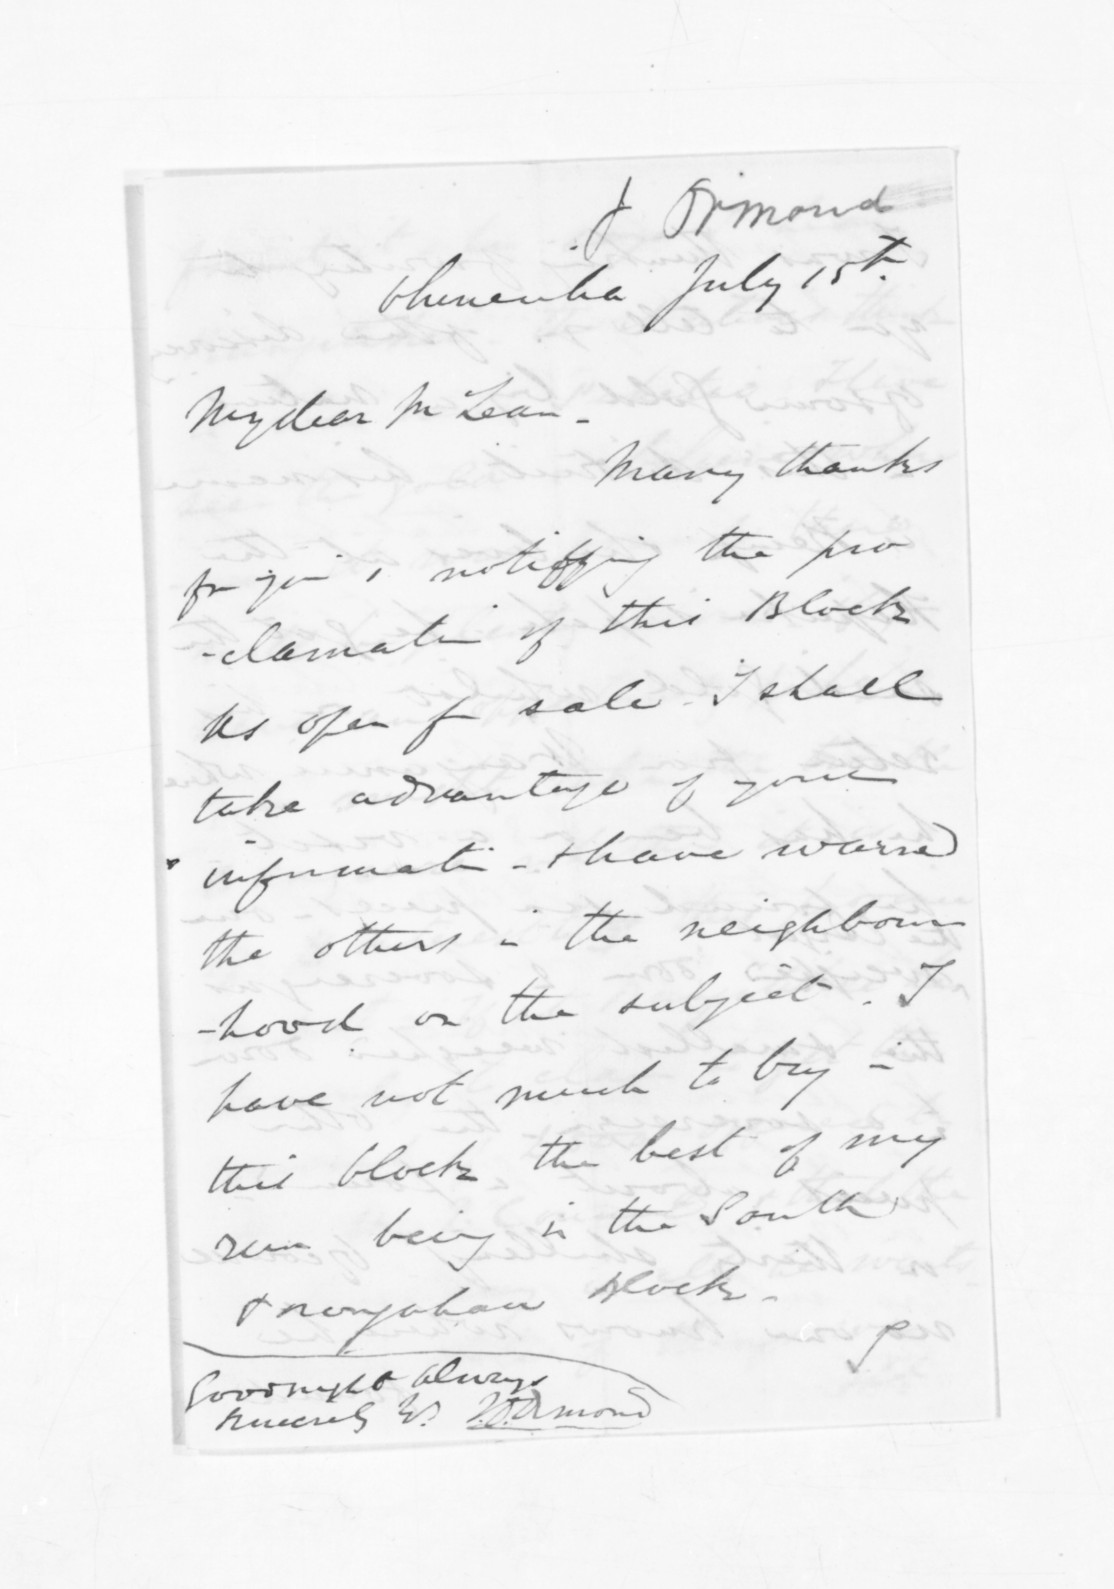 J Ormond
July 15th.
My dear McLean -
Many thanks
for notiffying the pro
-clamatin of this Block
as open for sale. I shall
take advantage of your
informatin - & have warned
the others in the neighbour
-hood on the subject. I
have not much to buy in
this block the best of my
run being in the South
block -
Goodnight always
sincerely Yrs J.D. Ormond